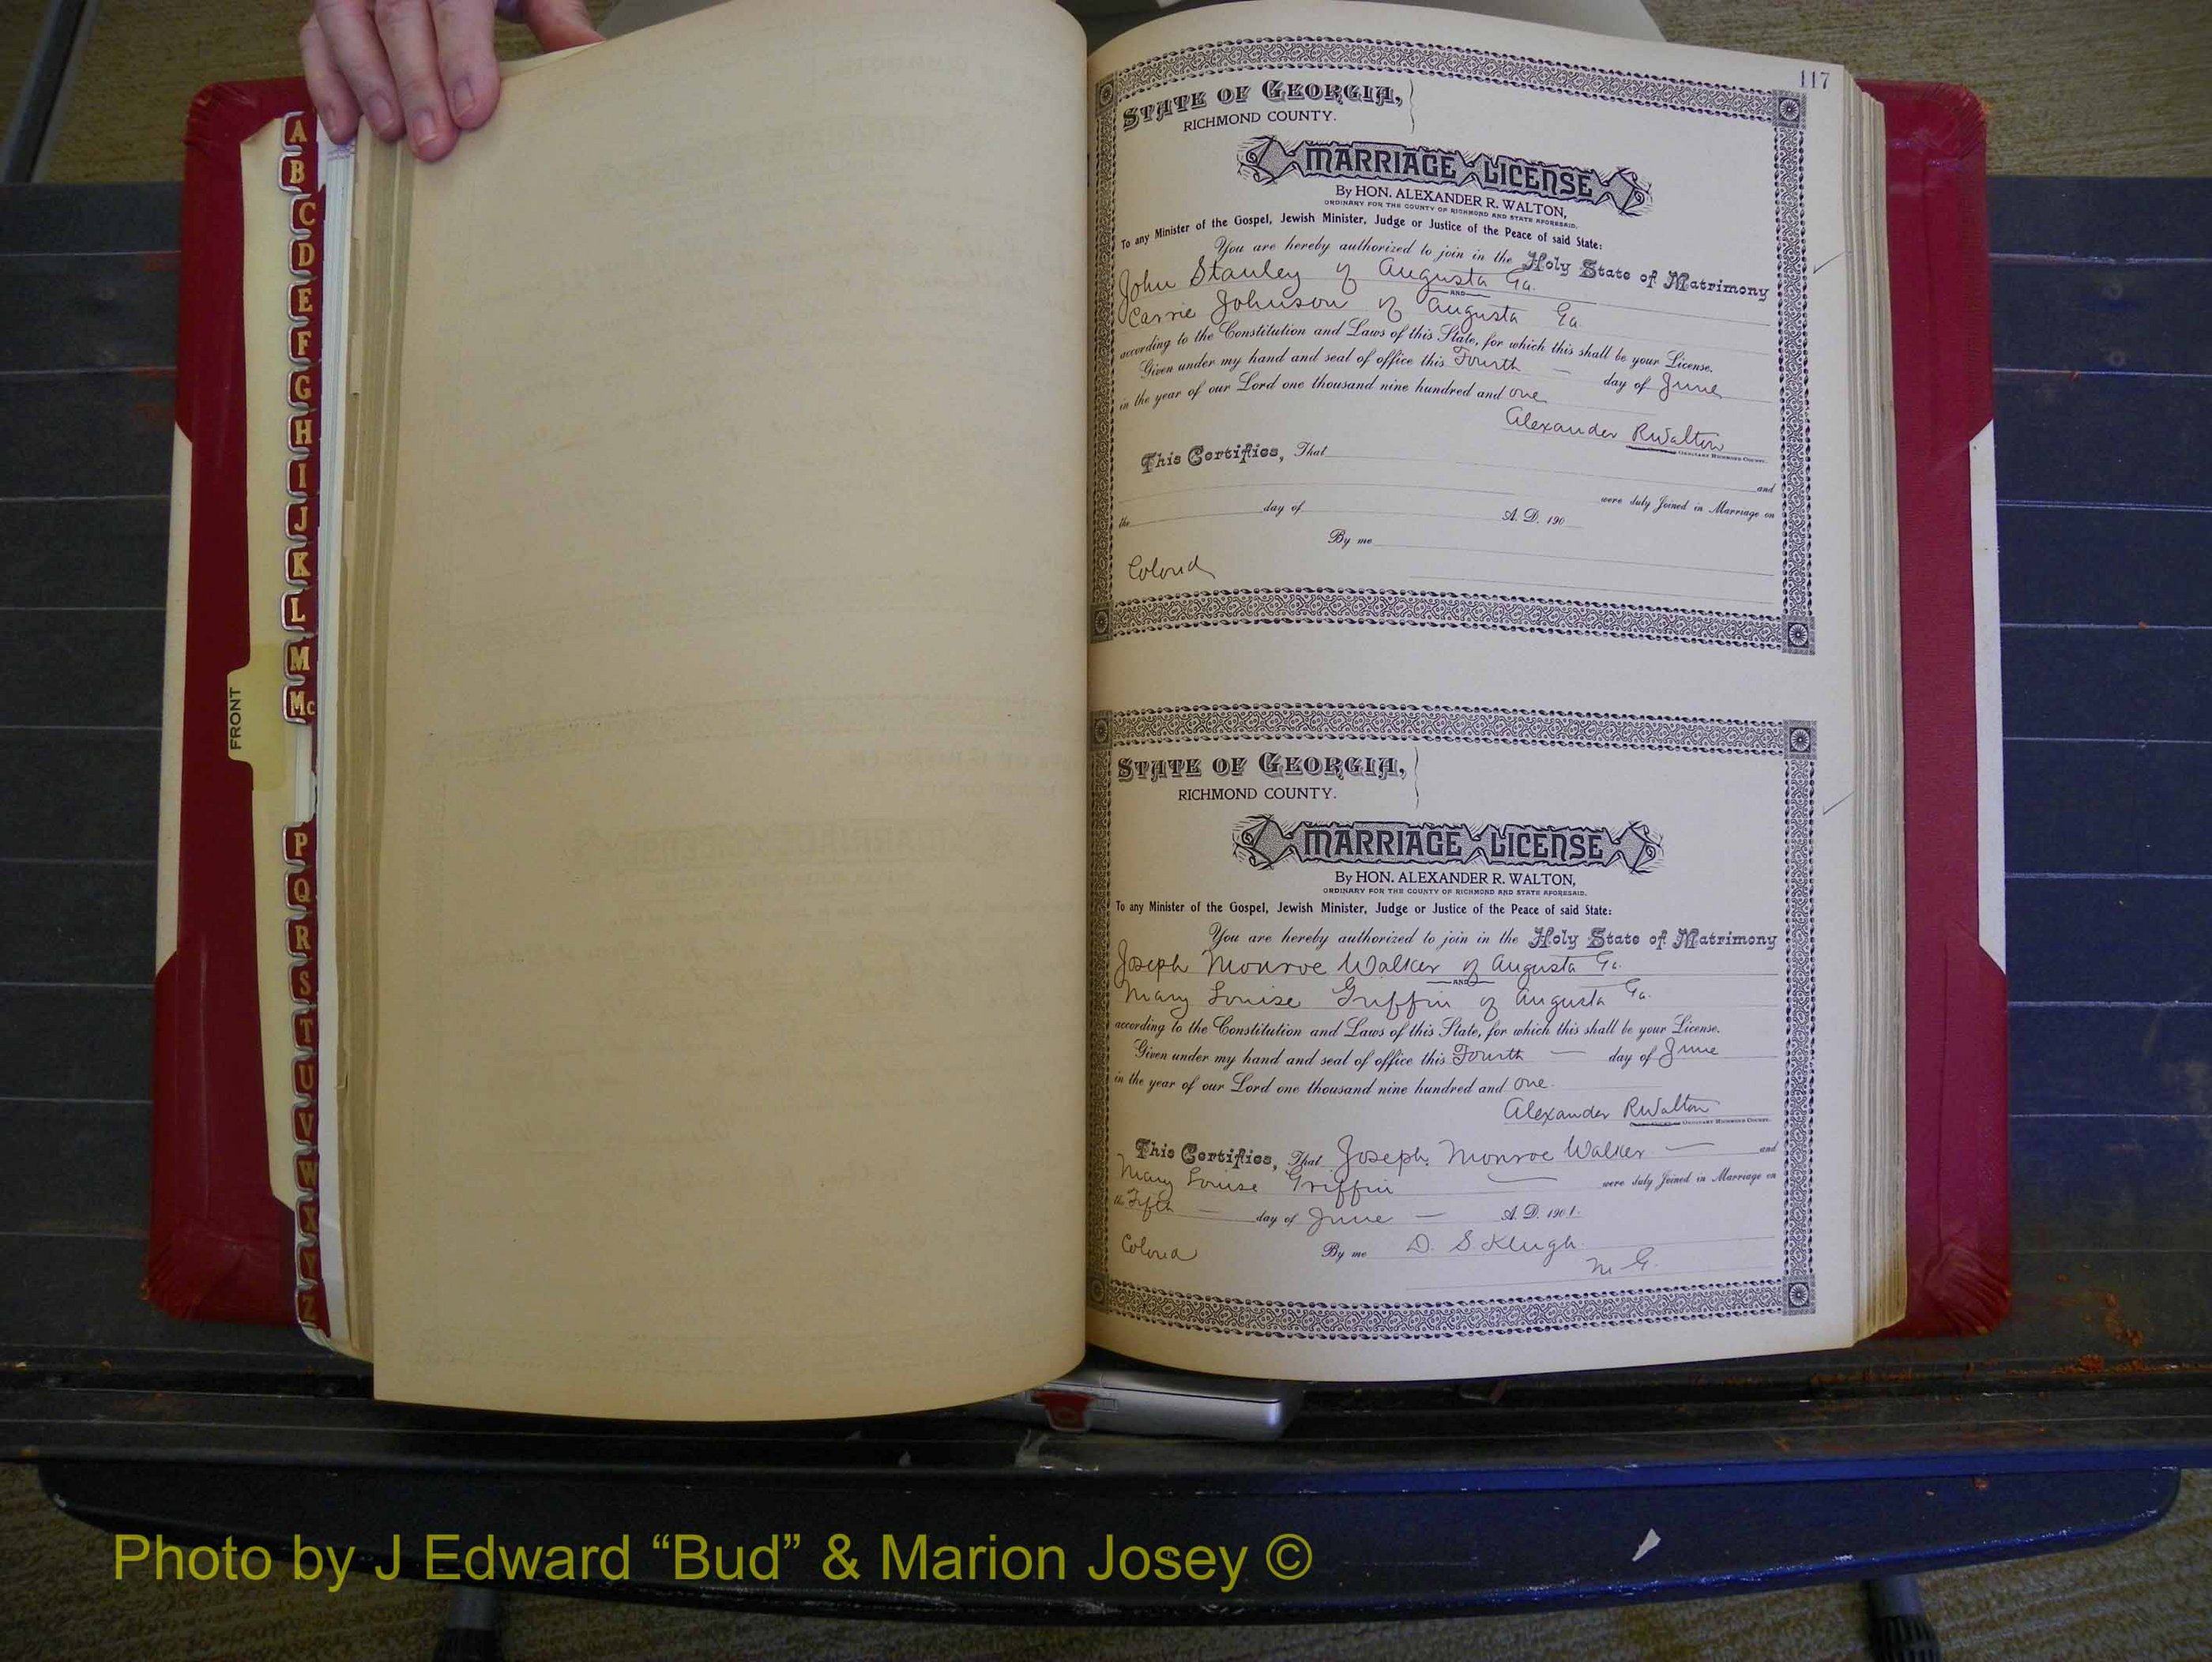 117
STATE OF GEORGIA,
RICHMOND COUNTY.
MARRIAGE LICENSE
By HON. ALEXANDER R. WALTON,
ORDINARY FOR THE COUNTY OF RICHMOND AND STATE AFORESAID.
To any Minister of the Gospel, Jewish Minister, Judge or Justice of the Peace of said State:
You are hereby authorized to join in the Holy State of Matrimony
John Stanley of Augusta Ga.
AND
Carrie Johnson of Augusta Ga.
according to the Constitution and Laws of this State, for which this shall be your License.
Given under my hand and seal of office this Fourth — day of June
in the year of our Lord one thousand nine hundred and one
Alexander R Walton
ORDINARY RICHMOND COUNTY.
This Certifies, That
and
were duly Joined in Marriage on
the day of A. D. 190
By me
Colored
STATE OF GEORGIA,
RICHMOND COUNTY.
MARRIAGE LICENSE
By HON. ALEXANDER R. WALTON,
ORDINARY FOR THE COUNTY OF RICHMOND AND STATE AFORESAID.
To any Minister of the Gospel, Jewish Minister, Judge or Justice of the Peace of said State:
You are hereby authorized to join in the Holy State of Matrimony
Joseph Monroe Walker of Augusta Ga.
AND
Mary Louise Griffin of Augusta Ga.
according to the Constitution and Laws of this State, for which this shall be your License.
Given under my hand and seal of office this Fourth — day of June
in the year of our Lord one thousand nine hundred and one.
Alexander R Walton
ORDINARY RICHMOND COUNTY.
This Certifies, That Joseph Monroe Walker — and
Mary Louise Griffin — were duly Joined in Marriage on
the Fifth — day of June — A. D. 1901.
Colored By me D. S. Klugh.
M. G.
A
B
C
D
E
F
G
H
I
J
K
L
M
Mc
FRONT
P
Q
R
S
T
U
V
W
X
Y
Z
Photo by J Edward “Bud” & Marion Josey ©